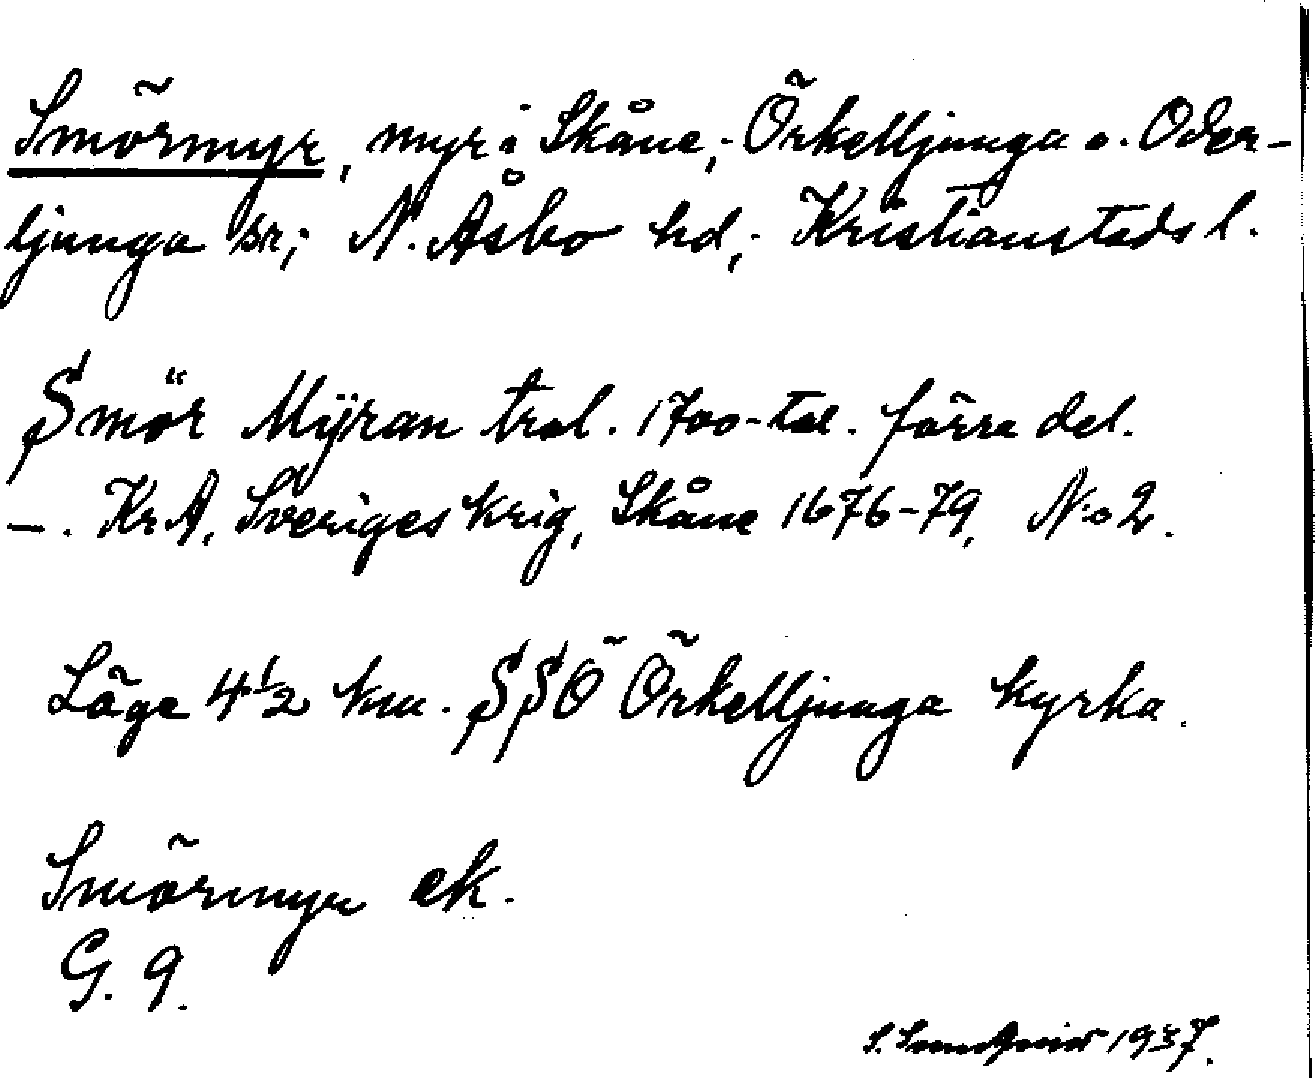 Smörmyr, myr i Skåne,; Örkelljunga o. Oder-
ljunga sn; N. Åsbo hd,; Kristianstads l.
Smör Mÿran trol. 1700-tal. förra del.
—. KrA, Sveriges krig, Skåne 1676-79, N:o 2.
Läge 4 1/2 km. SSÖ Örkelljunga kyrka.
Smörmyr ek.
G. 9.
S. 1937.